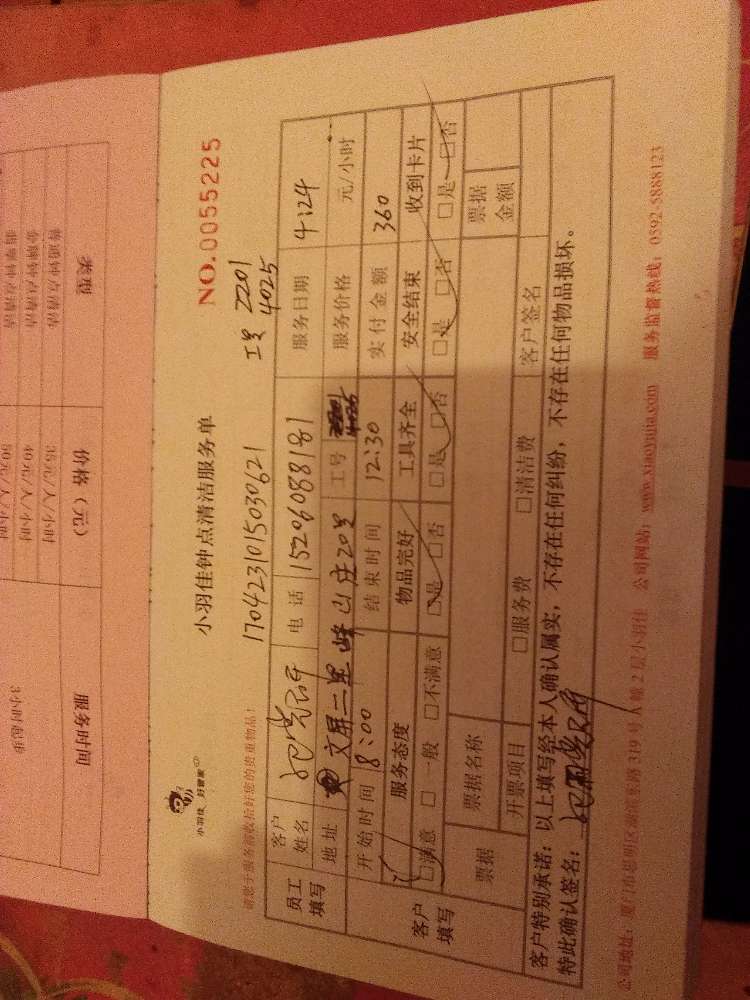 类型
价格（元）
服务时间
普通钟点清洁
35元/人/小时
金牌钟点清洁
40元/人/小时
翡翠钟点清洁
50元/人/小时
3小时起步
小羽佳 好管家
小羽佳钟点清洁服务单
NO.0055225
请您于服务前收拾好您的贵重物品！
1704231015030621
工号 2201
4025
员工填写
客户姓名
电话
15206088181
服务日期
4:24
地址
文屏二里 峰山庄20号
工号
服务价格
元/小时
客户填写
开始时间
8:00
结束时间
12:30
实付金额
360
服务态度
物品完好
工具齐全
安全结束
收到卡片
□满意 □一般 □不满意
□是 □否
□是 □否
□是 □否
□是 □否
票据
票据名称
票据金额
开票项目
□服务费 □清洁费
客户签名
客户特别承诺：以上填写经本人确认属实，不存在任何纠纷，不存在任何物品损坏。
特此确认签名：
公司地址：厦门市思明区湖滨东路319号A幢2层小羽佳 公司网站：www.xiaoyujia.com 服务监督热线：0592-5888123